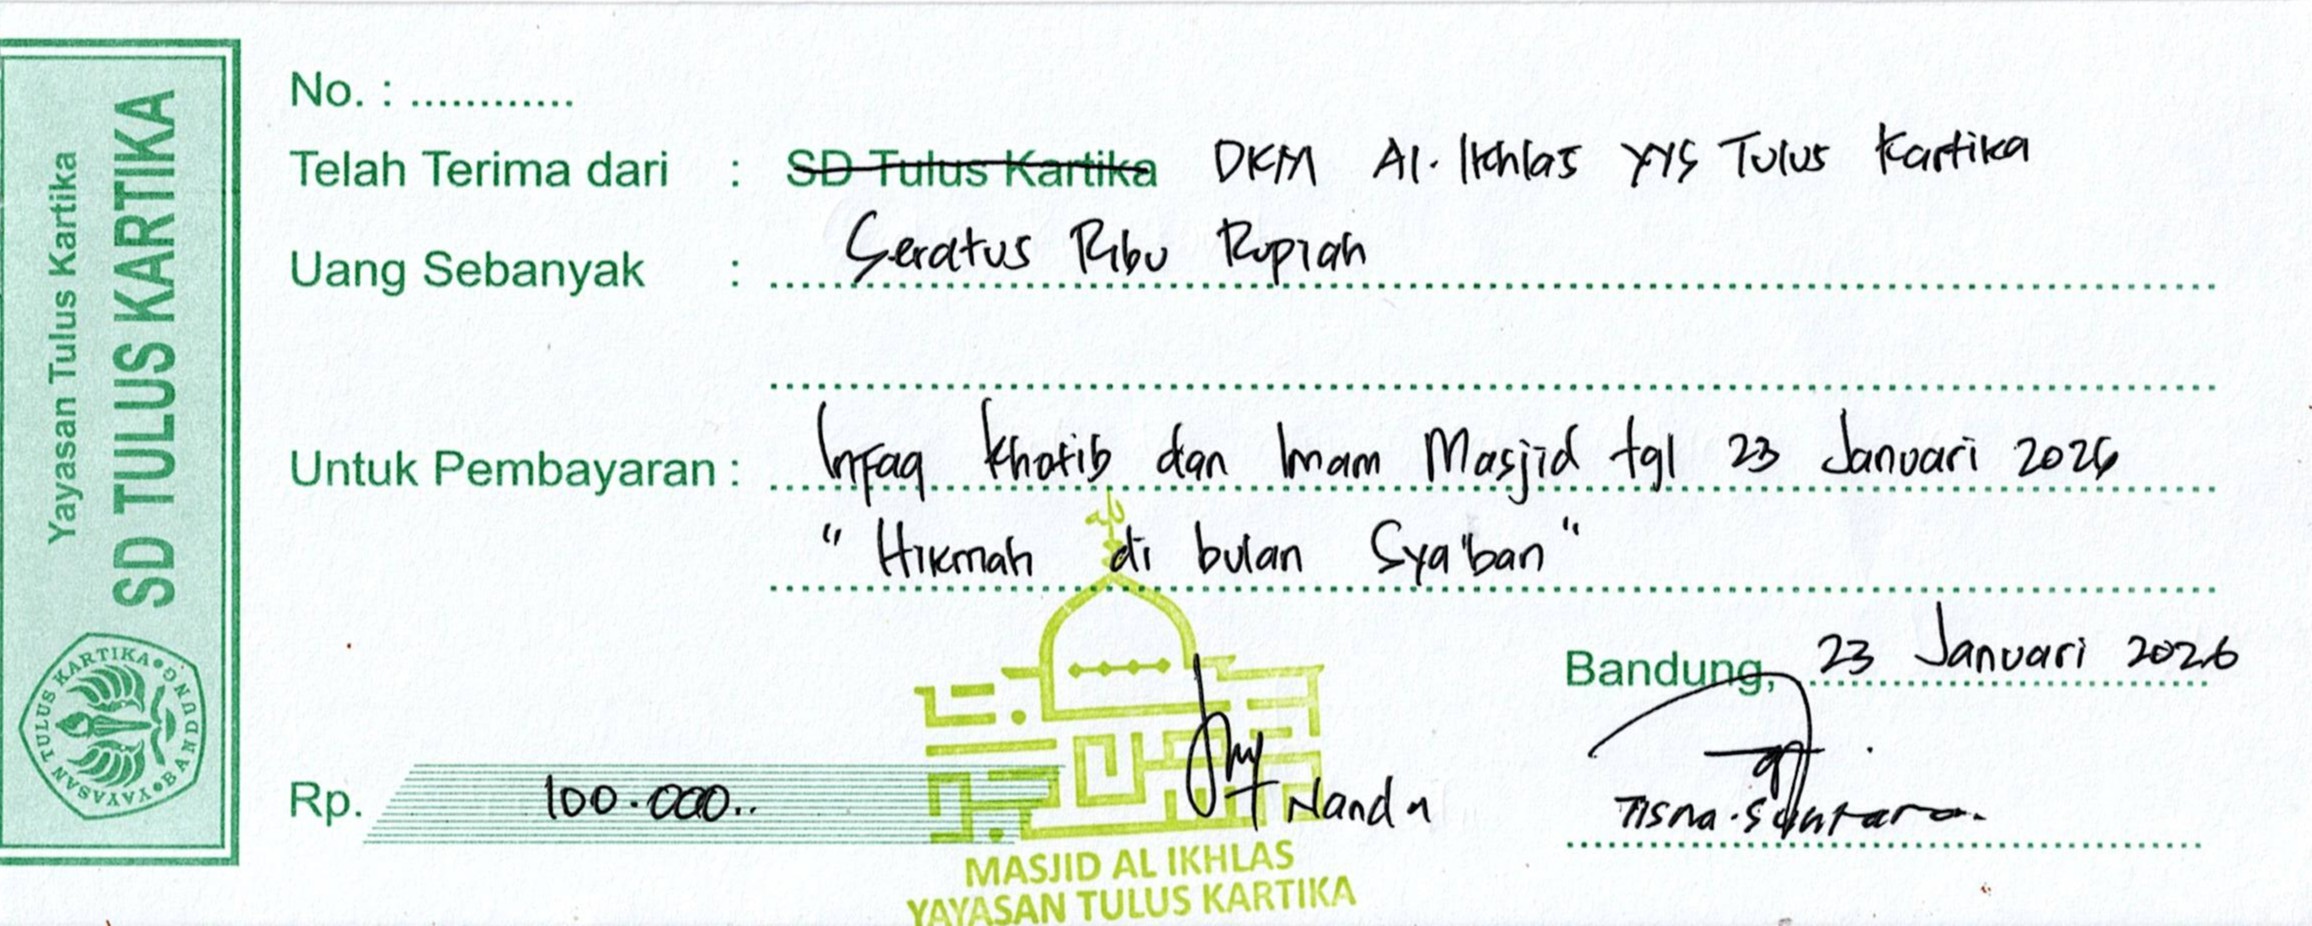 Yayasan Tulus Kartika
SD TULUS KARTIKA
YAYASAN TULUS KARTIKA • BANDUNG •
No. : ............
Telah Terima dari : SD Tulus Kartika DKM Al. Ikhlas YYS Tulus Kartika
Uang Sebanyak : Seratus Ribu Rupiah
Untuk Pembayaran : Infaq Khotib dan Imam Masjid tgl 23 Januari 2026
"Hikmah di bulan Sya'ban"
Bandung, 23 Januari 2026
Rp. 100.000..
Nanda
Tisna
MASJID AL IKHLAS
YAYASAN TULUS KARTIKA